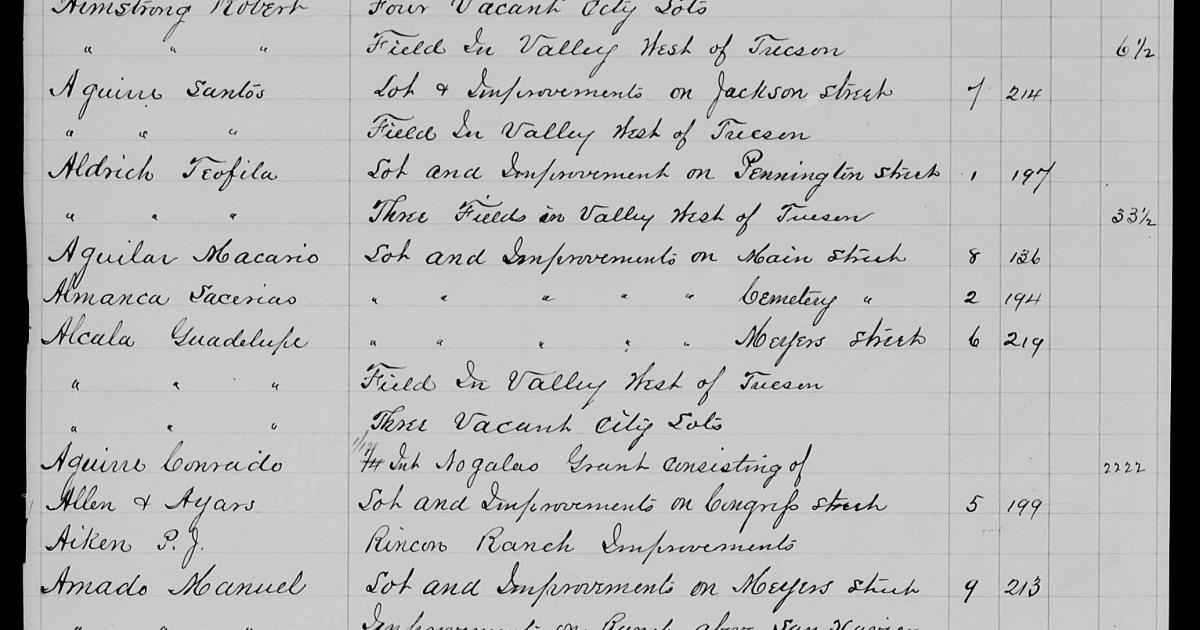 Armstrong Robert Four Vacant City Lots
" " " Field In Valley West of Tucson 6½
Aguirre Santos Lot & Improvements on Jackson street 7 214
" " " Field In Valley West of Tucson
Aldrich Teofila Lot and Improvement on Pennington street 1 197
" " " Three Fields in Valley West of Tucson 33½
Aguilar Macario Lot and Improvements on Main street 8 136
Almanca Sacerias " " " " " Cemetery " 2 194
Alcala Guadelupe " " " " " Meyers street 6 219
" " " Field In Valley West of Tucson
" " " Three Vacant City Lots
Aguirre Conrado Int Nogalas Grant consisting of 2222
Allen & Ayars Lot and Improvements on Congress street 5 199
Aiken P. J. Rincon Ranch Improvements
Amado Manuel Lot and Improvements on Meyers street 9 213
" " " Improvement on Ranch above San Xavier